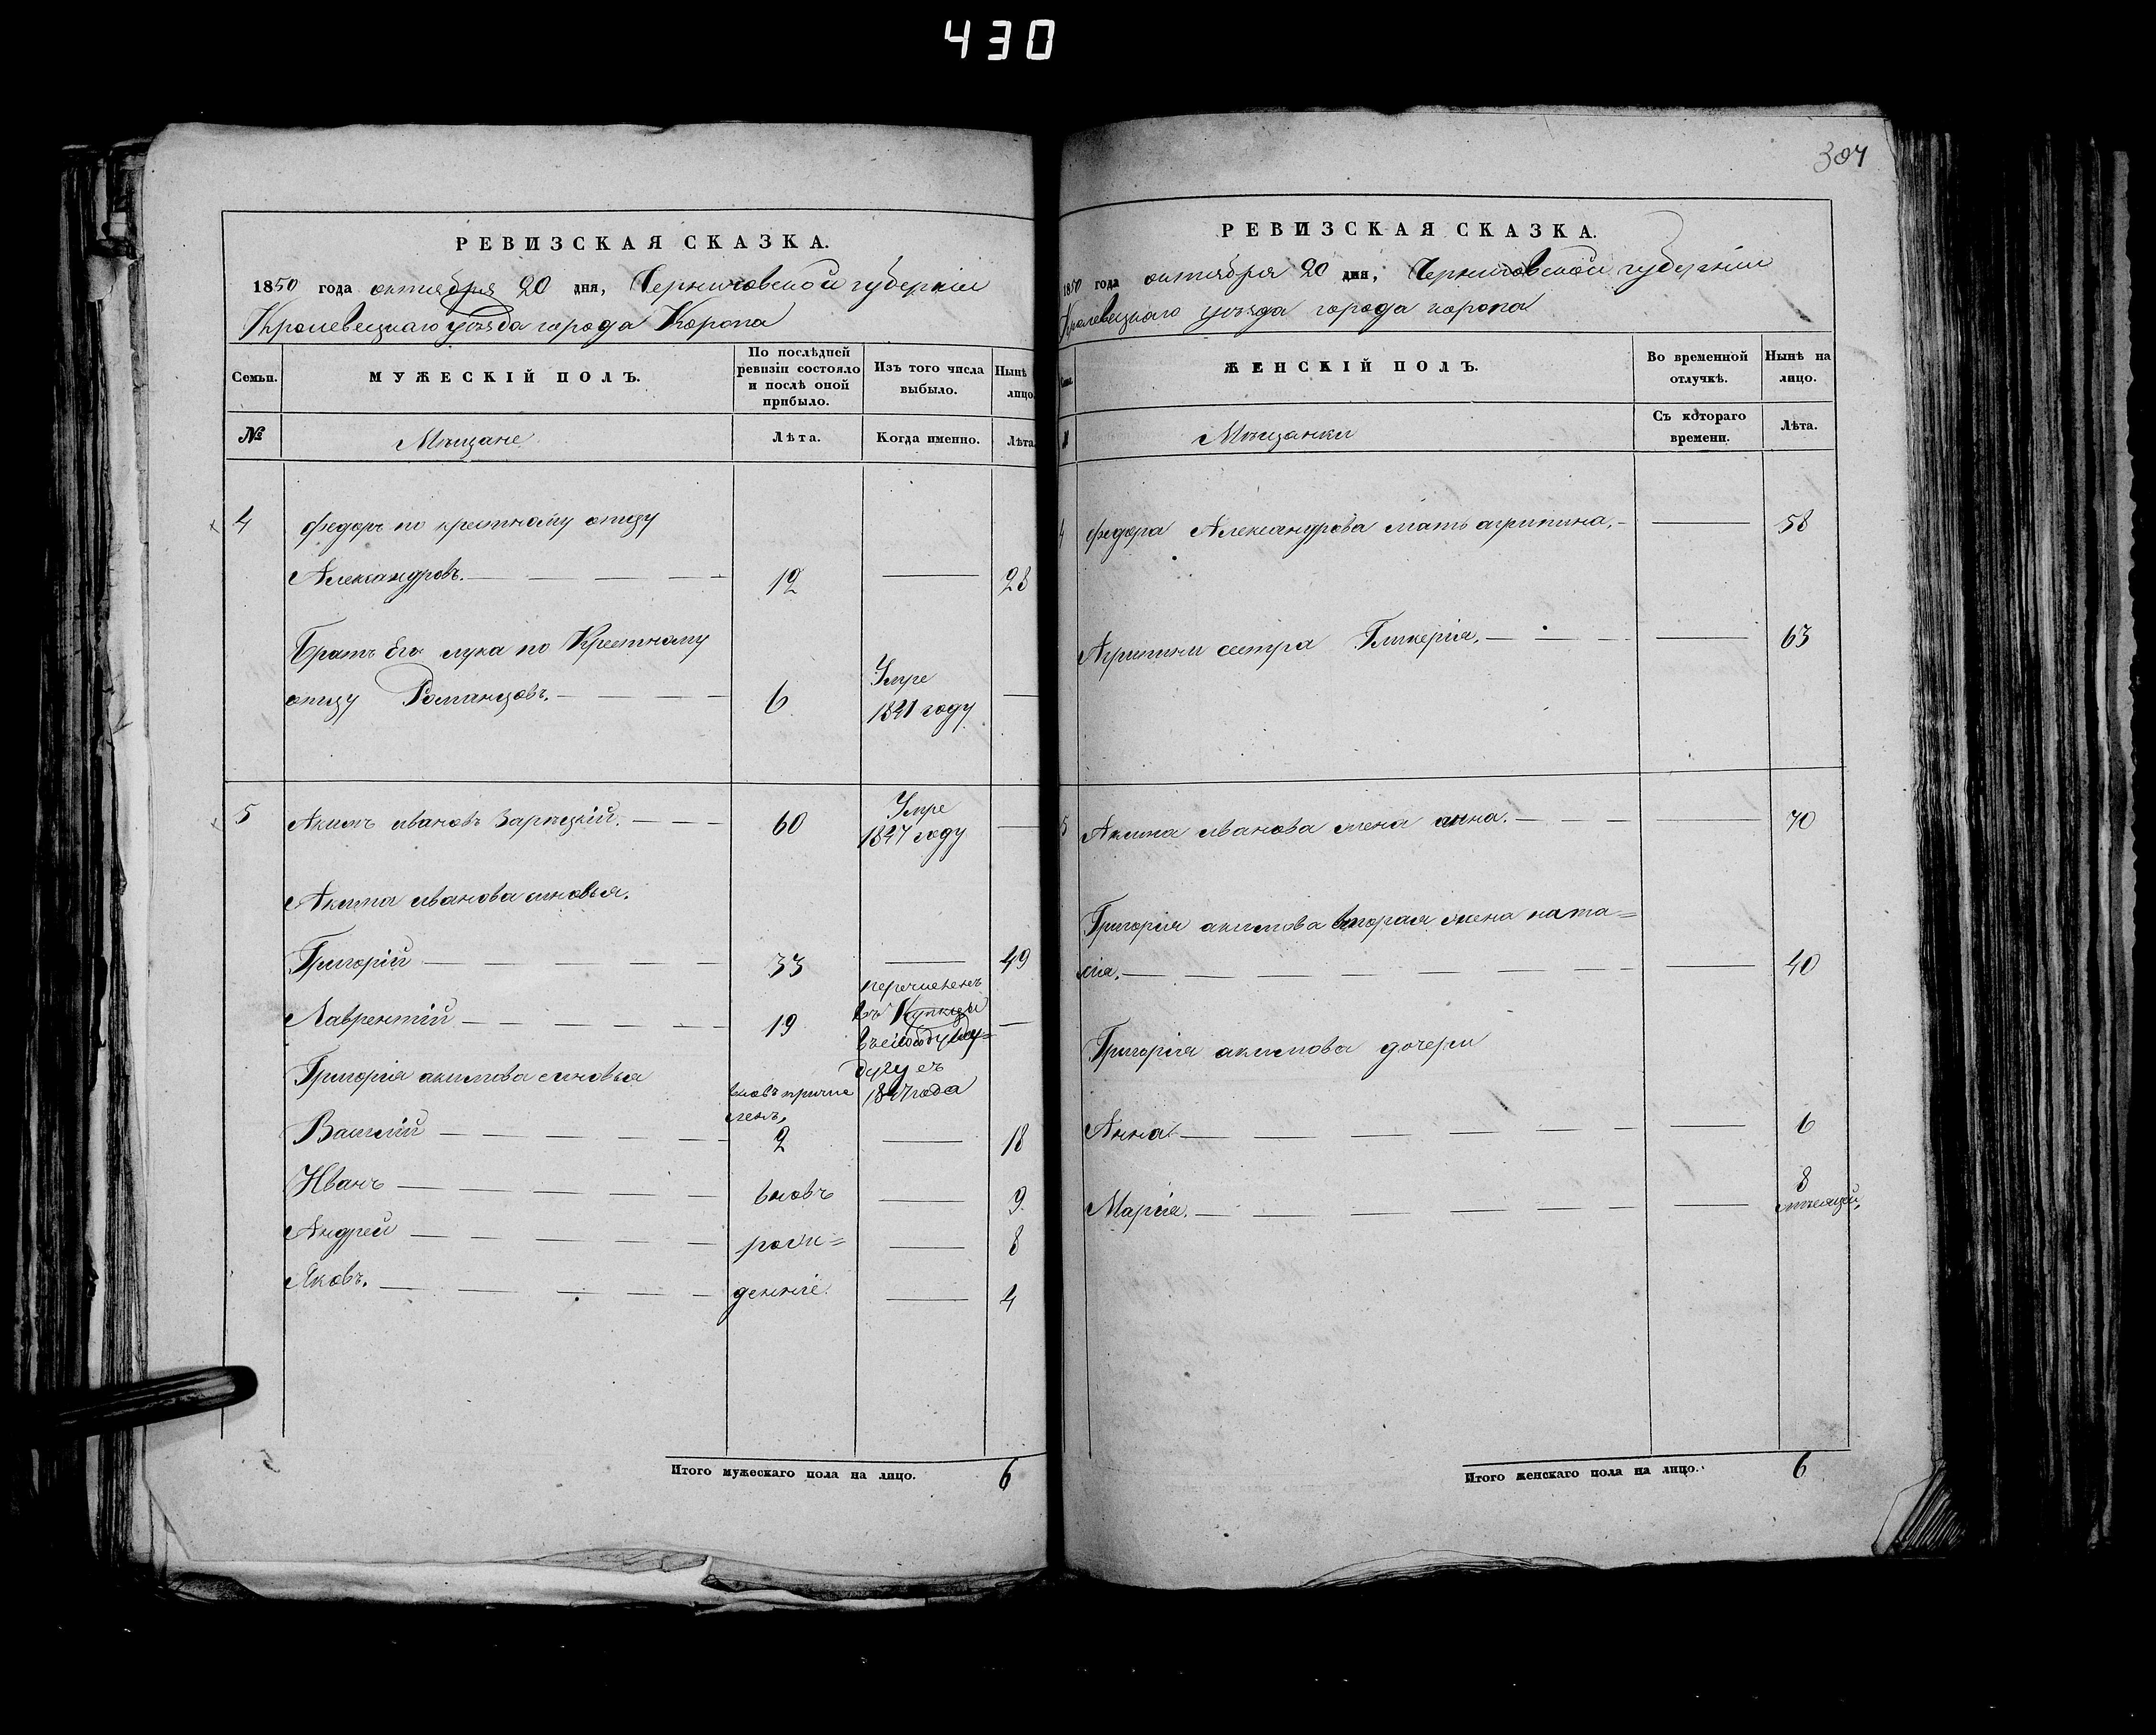 430
РЕВИЗСКАЯ СКАЗКА.
1850 года октября 20 дня, Черниговской губерніи
Кролевецкаго уѣзда города Коропа
Семьи.
МУЖЕСКІЙ ПОЛЪ.
По послѣдней ревизіи состояло и послѣ оной прибыло.
Изъ того числа выбыло.
Нынѣ лицо.
№
Мѣщане
Лѣта.
Когда именно.
Лѣта.
4 Федоръ по крестному отцу
Александровъ. 12 28
Братъ Его лука по Крестному
отцу Романцовъ. 6 Умре 1841 году
5 Акимъ ивановъ Зарѣцкій. 60 Умре 1847 году
Акима иванова сыновья.
Григорій 33 49
Лаврентій 19 перечисленъ
въ Купцы
1847 года
Григорія акимова сыновья
вновь причис
ленъ,
Василій 2 18
Иванъ вновь 9.
Андрей рож= 8
Яковъ. деніе. 4
Итого мужескаго пола на лицо. 6
307
РЕВИЗСКАЯ СКАЗКА.
1850 года октября 20 дня, Черниговской губерніи
Кролевецкаго уѣзда города коропа
ЖЕНСКІЙ ПОЛЪ.
Во временной отлучкѣ.
Нынѣ на лицо.
Мѣщанки
Съ котораго времени.
Лѣта.
4 федора Александрова мать агрипина. 58
Агрипины сестра Гликерія. 63
5 Акима иванова жена анна. 70
Григорія акимова вторая жена ната=
лія. 40
Григорія акимова дочери
Анна 6
Марія. 8 мѣсяцей,
Итого женскаго пола на лицо. 6